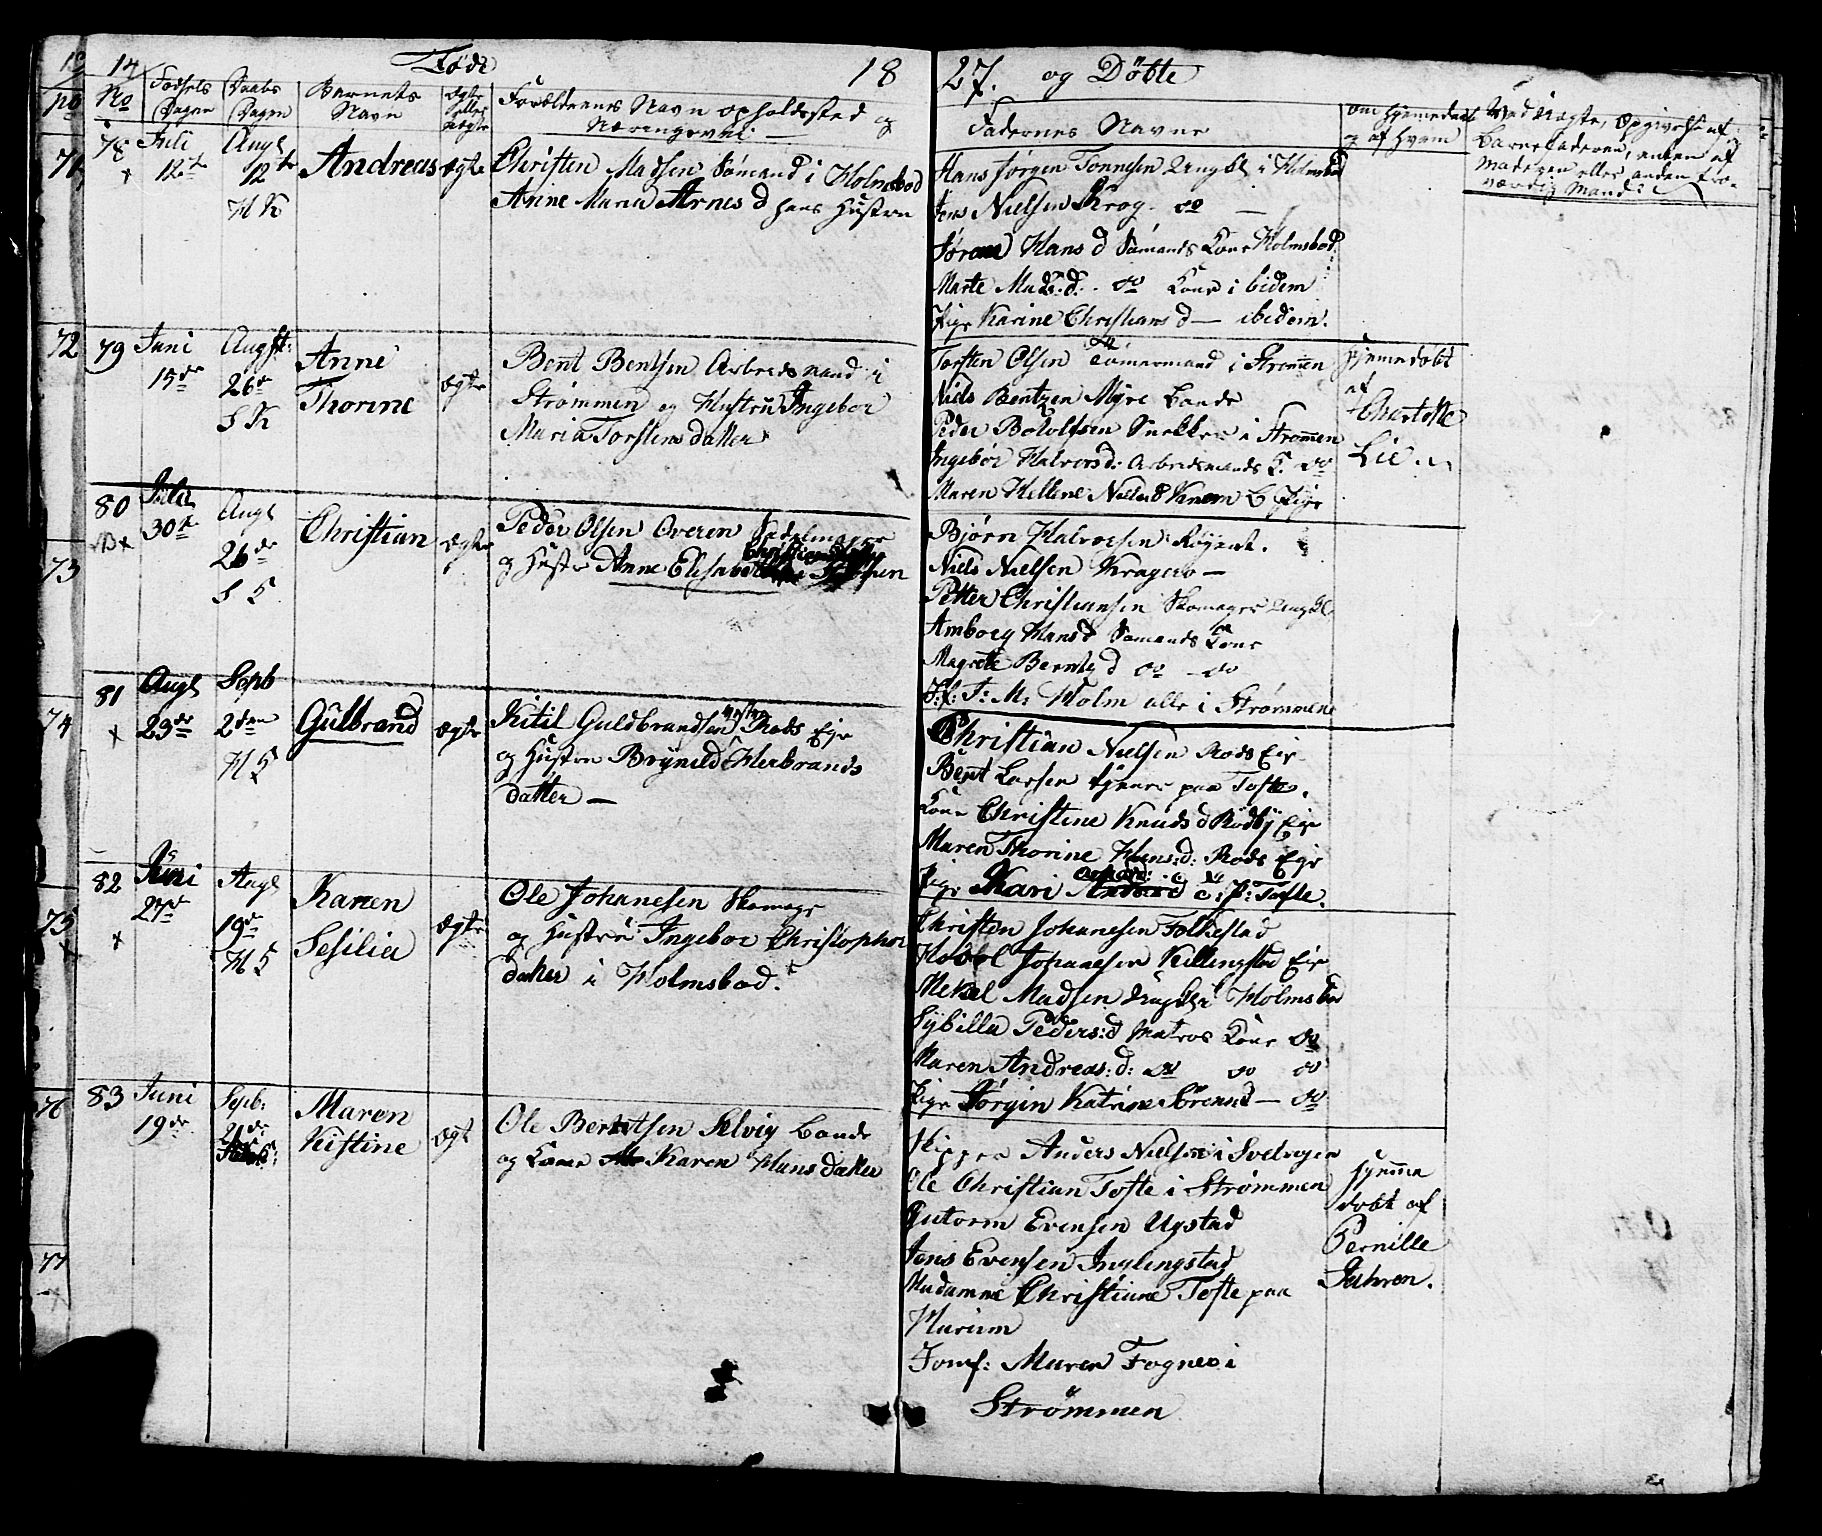 14 Födte 18 27. og Döbte
No
Födsels Dagen
Daabs Dagen
Barnets Navn
Ægte eller Uægte
Forældrenes Navn opholdssted og Næringsvei. —
Faddernes Navne
om hjemedøbt og af hvem
78 Juli 12te
Augt 12te H K
Andreas
Ægte
Christen Madsen Sömand i Holmsbod
Anne Maria Arnes d hans Hustru
Hans Jørgen Tonnesen Ungkl i Holmsbod
Jens Nielsen Krog. do —
Sørene Hans d Sömands Kone Holmsbod
Marte Mads:d: do Kone ibidem
Pige Karine Christians d — ibidem.
79 Juni 15de
Augst: 26de S K
Anne
Thorine
Ægte
Bent Bentsen Arbeidsmand i
Strømmen og Hustru Ingebor
Maria Torstensdatter
Torsten Olsen Tömermand i Strømen
Niels Bentzen Myre Bonde
Peder Bototfsen Snekker i Strømen
Ingebör Halvorsd: Arbeidsmands K. do
Maren Hellene Nielsd Knem B Pige
Hjemedøbt
af
Charlotte
Lie.
80 Julii 30te
Augt 26de S K
Christian
Ægte
Peder Olsen Overen Sadelmager
og Hustr Anne Elisabet
Bjørn Halvorsen Røyert.
Niels Nielsen Kragerø —
Petter Christiansen Skomager Ungkl
Amborg Hansd Sömands Kone
Magrete Berntz d do do
Jf: T: M: Holm alle i Strømmene
81 Augt 29de
Septb 2den H K
Gulbrand
Ægte
Kitil Guldbrandsen Rods Eje
og Hustru Brynild Herbrands
datter —
Christian Nielsen Rods Eie
Bent Larsen tjener paa Tofte.
Kone Christine Knuds d Rödby Eie
Maren Thorine Hans:d: Rods Eje
Pige Kari d: P: Tofte.
82 Juni 27de
Augt 19de H K
Karen
Sesilia
Ægte
Ole Johanesen Skomager
og Hustru Ingebor Christophor
datter i Holmsbod.
Christen Johanesen Folkestad
Hovel Johanesen Killingstad Eie
Mekel Madsen Ungkl i Holmsbod
Sybilla Peders:d Matros Kone do
Maren Andreas:d: do do do
Pige Jørgin Katrine Sörensd — do
83 Juni 19de
Sepb: 2de
Maren
Kistine
Ægt
Ole Berntsen Selvig Bonde
og Kone Karen Hans datter
Skipper Anders Nielsen i Svelvigen
Ole Christian Tofte i Strømmen
Gutorm Evensen Ugstad
Jens Evensen Inglingstad
Madamme Christiane Tofte paa
Hurum
Jomf: Maren Fognes i
Strømmen
Hjemme
døbt af
Pernille
Gulsvon.
71
72
73
74
75
76
77